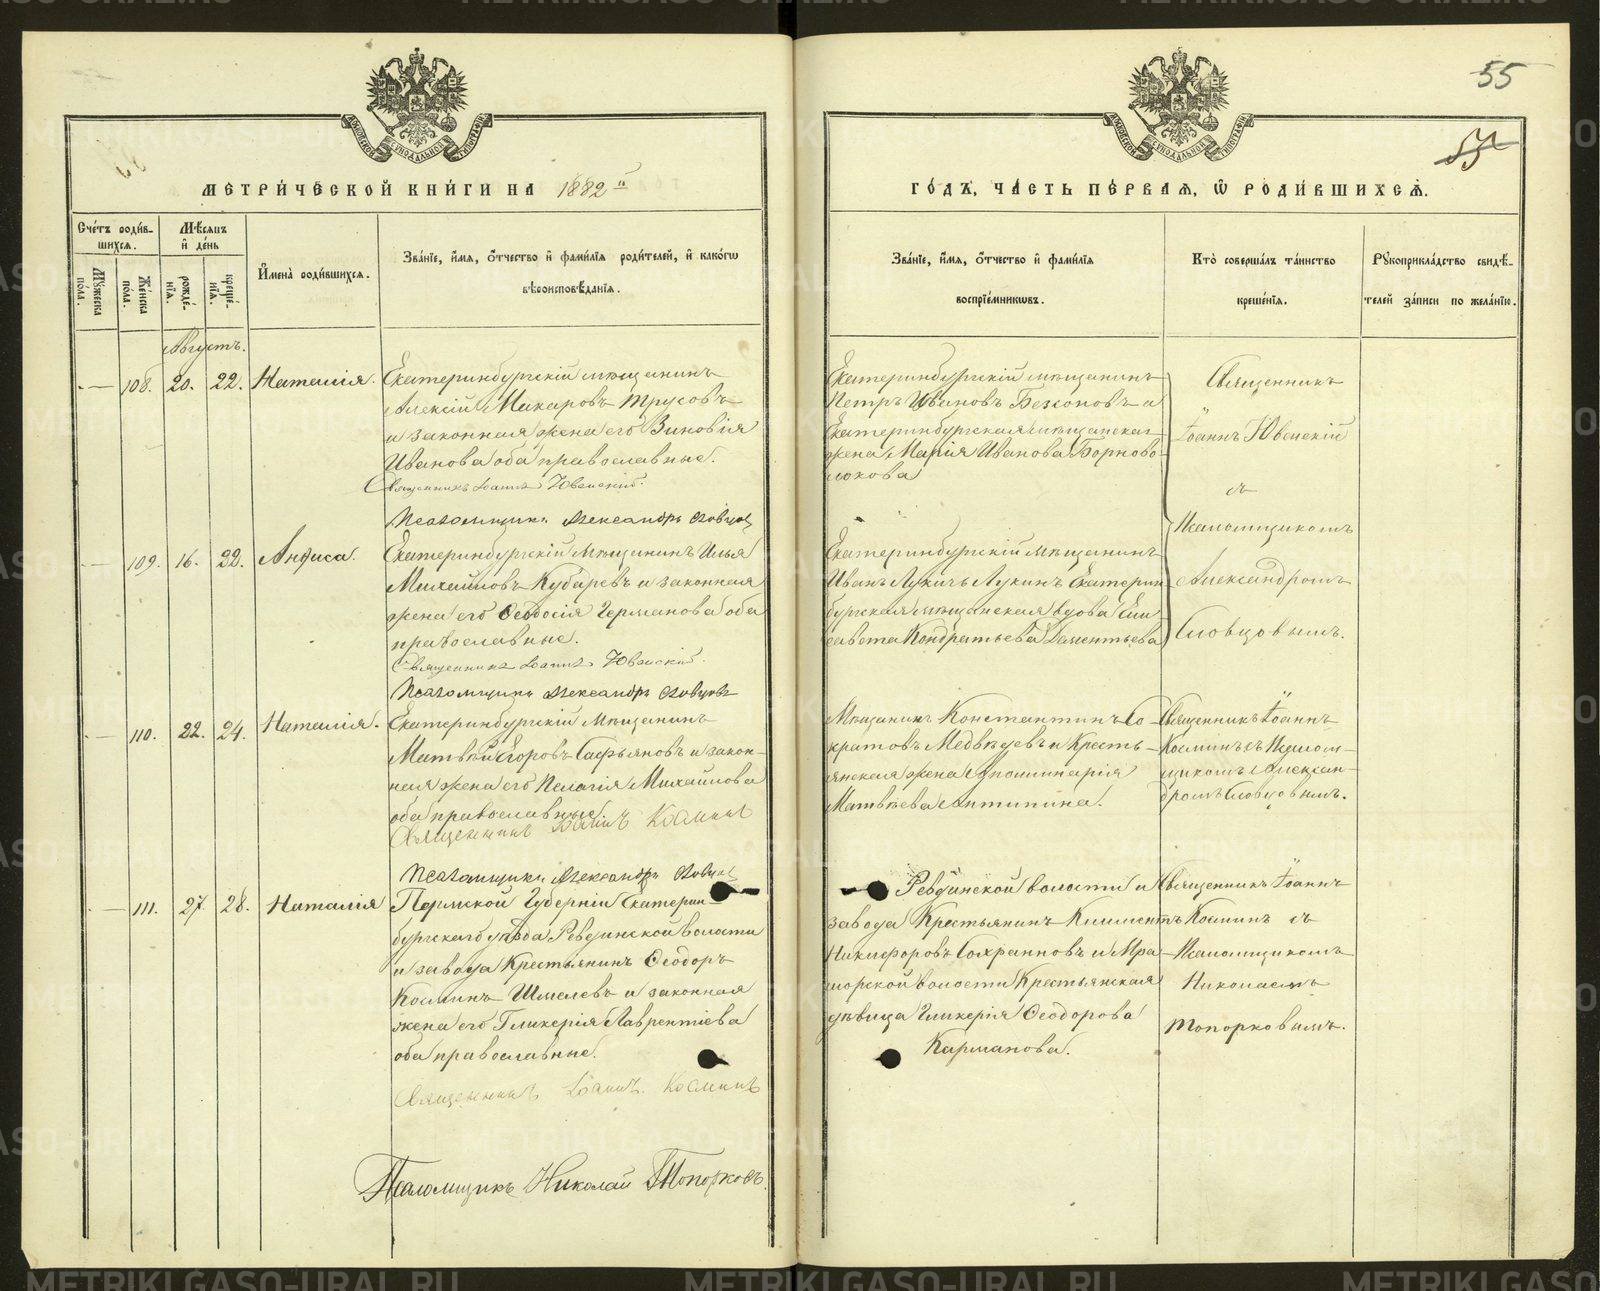 55
МЕТРИЧЕСКОЙ КНИГИ НА 1882 й
ГОДЪ, ЧАСТЬ ПЕРВАЯ, Ѡ РОДИВШИХСЯ.
Счетъ родив-
шихся.
Мужеска
пола.
Женска
пола.
Мѣсяцъ
и день
рожде-
нія.
креще-
нія.
Имена родившихся.
Званіе, имя, отчество и фамилія родителей, и какогѡ
вѣроисповѣданія.
Званіе, имя, отчество и фамилія
воспріемникѡвъ.
Кто совершалъ таинство
крещенія.
Рукоприкладство свидѣ-
телей записи по желанію.
Августъ.
— 108. 20. 22. Наталія.
Екатеринбургскій мѣщанинъ
Алексій Макаровъ Трусовъ
и законная жена его Зиновія
Иванова оба православные.
Священникъ Іоаннъ Ювенскій.
Псаломщикъ Александръ Словцовъ
Екатеринбургскій мѣщанинъ
Петръ Ивановъ Безсоновъ и
Екатеринбургская мѣщанская
жена Марія Иванова Борново-
локова
Священникъ
Іоаннъ Ювенскій
съ
Псаломщикомъ
Александромъ
Словцовымъ.
— 109. 16. 22. Анфиса.
Екатеринбургскій мѣщанинъ Илья
Михайловъ Кубаревъ и законная
жена его Ѳеодосія Германова оба
православные.
Священникъ Іоаннъ Ювенскій.
Псаломщикъ Александръ Словцовъ
Екатеринбургскій мѣщанинъ
Иванъ Лукичъ Лукинъ Екатерин
бургская мѣщанская вдова Ели
савета Кондратьева Дементьева
— 110. 22. 24. Наталія.
Екатеринбургскій мѣщанинъ
Матвѣй Егоровъ Сафьяновъ и закон-
ная жена его Пелагія Михайлова
оба православные.
Священникъ Іоаннъ Косминъ
Псаломщикъ Александръ Словцовъ
Мѣщанинъ Константинъ Со-
кратовъ Медвѣдевъ и Кресть-
янская жена Аполлинарія
Матвѣева
Священникъ Іоаннъ
Косминъ съ Псалом-
щикомъ Алексан-
дромъ Словцовымъ.
— 111. 27. 28. Наталія
Пермской Губерніи Екатерин-
бургскаго уѣзда Ревдинской волости
и завода Крестьянинъ Ѳеодоръ
Косминъ Шмелевъ и законная
жена его Гликерія Лаврентіева
оба православные.
Священникъ Іоаннъ Косминъ
Псаломщикъ Николай Топорковъ.
Ревдинской волости и
завода Крестьянинъ Климентъ
Никифоровъ Сохранновъ и Мра-
морской волости Крестьянская
дѣвица Гликерія Ѳеодорова
Карманова.
Священникъ Іоаннъ
Косминъ съ
Псаломщикомъ
Николаемъ
Топорковымъ.
METRIKI.GASO-URAL.RU